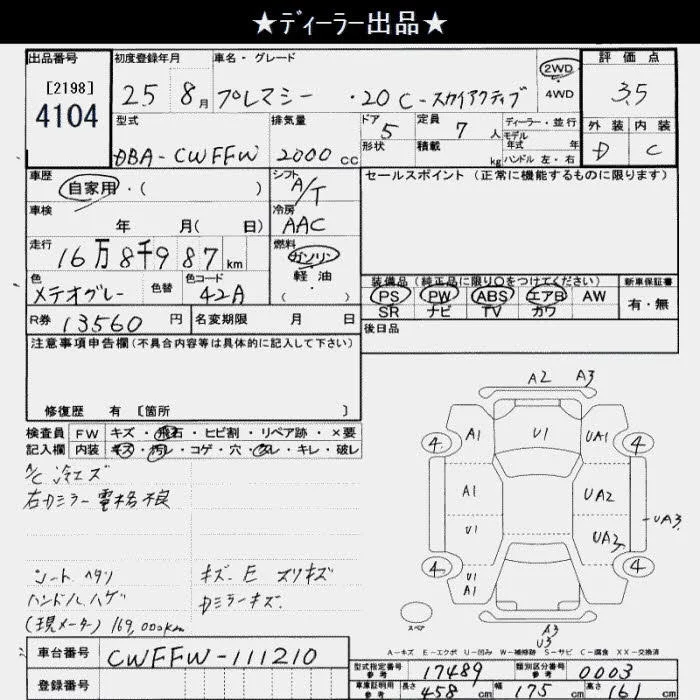 ★ディーラー出品★
出品番号 初度登録年月 車名・グレード 評価点
[2198] 4104 25 8月 プレマシー ・20C-スカイアクティブ 2WD 4WD 3.5
型式 排気量 ドア 定員 ディーラー・並行 外装 内装
DBA-CWFFW 2000cc 5 7人 モデル年式 年 D C
形状 積載 kg ハンドル 左・右
車歴 自家用・( ) シフト A/T セールスポイント(正常に機能するものに限ります)
車検 年 月( 日) 冷房 AAC
走行 16万8千987km 燃料 ガソリン 軽油 ( )
装備品(純正品に限り○をつけてください) 新車保証書
色 メテオグレー 色替 色コード 42A PS PW ABS エアB AW 有・無
SR ナビ TV カワ
R券 13560円 名変期限 月 日 後日品
注意事項申告欄(不具合内容等は具体的に記入して下さい)
修復歴 有 [箇所 ]
検査員 FW キズ・飛石・ヒビ割・リペア跡・×要
記入欄 内装 キズ・汚レ・コゲ・穴・スレ・キレ・破レ
A/C 冷エズ
右カミラー電格不良
シート ヘタリ キズ. E スリキズ
ハンドルハゲ カミラーキズ.
(現メータ) 169,000km
A2 A3
4 A1 U1 UA1 4
A1 UA2
U1 UA3 UA3
4 U1 A1 4
スペア A3 U3
A-キズ E-エクボ U-凹み W-補修跡 S-サビ C-腐食 XX-交換済
車台番号 CWFFW-111210
型式指定番号 参考 17489 類別区分番号 参考 0003
登録番号 車庫証明用 参考 長さ 458cm 幅 175cm 高さ 161cm